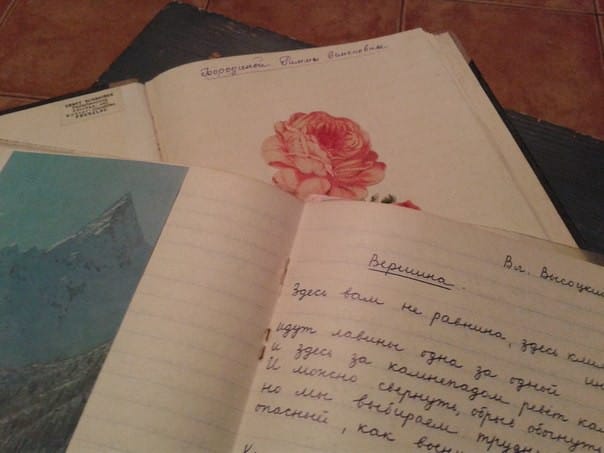 Бородиной Риммы
Вл. Высоцки
Вершина.
Здесь вам не равнина, здесь кли
идут лавины одна за одной
и здесь за камнепадом ревёт ка
И можно свернуть, обрыв обогнуть
но мы выбираем трудн
опасный, как воен